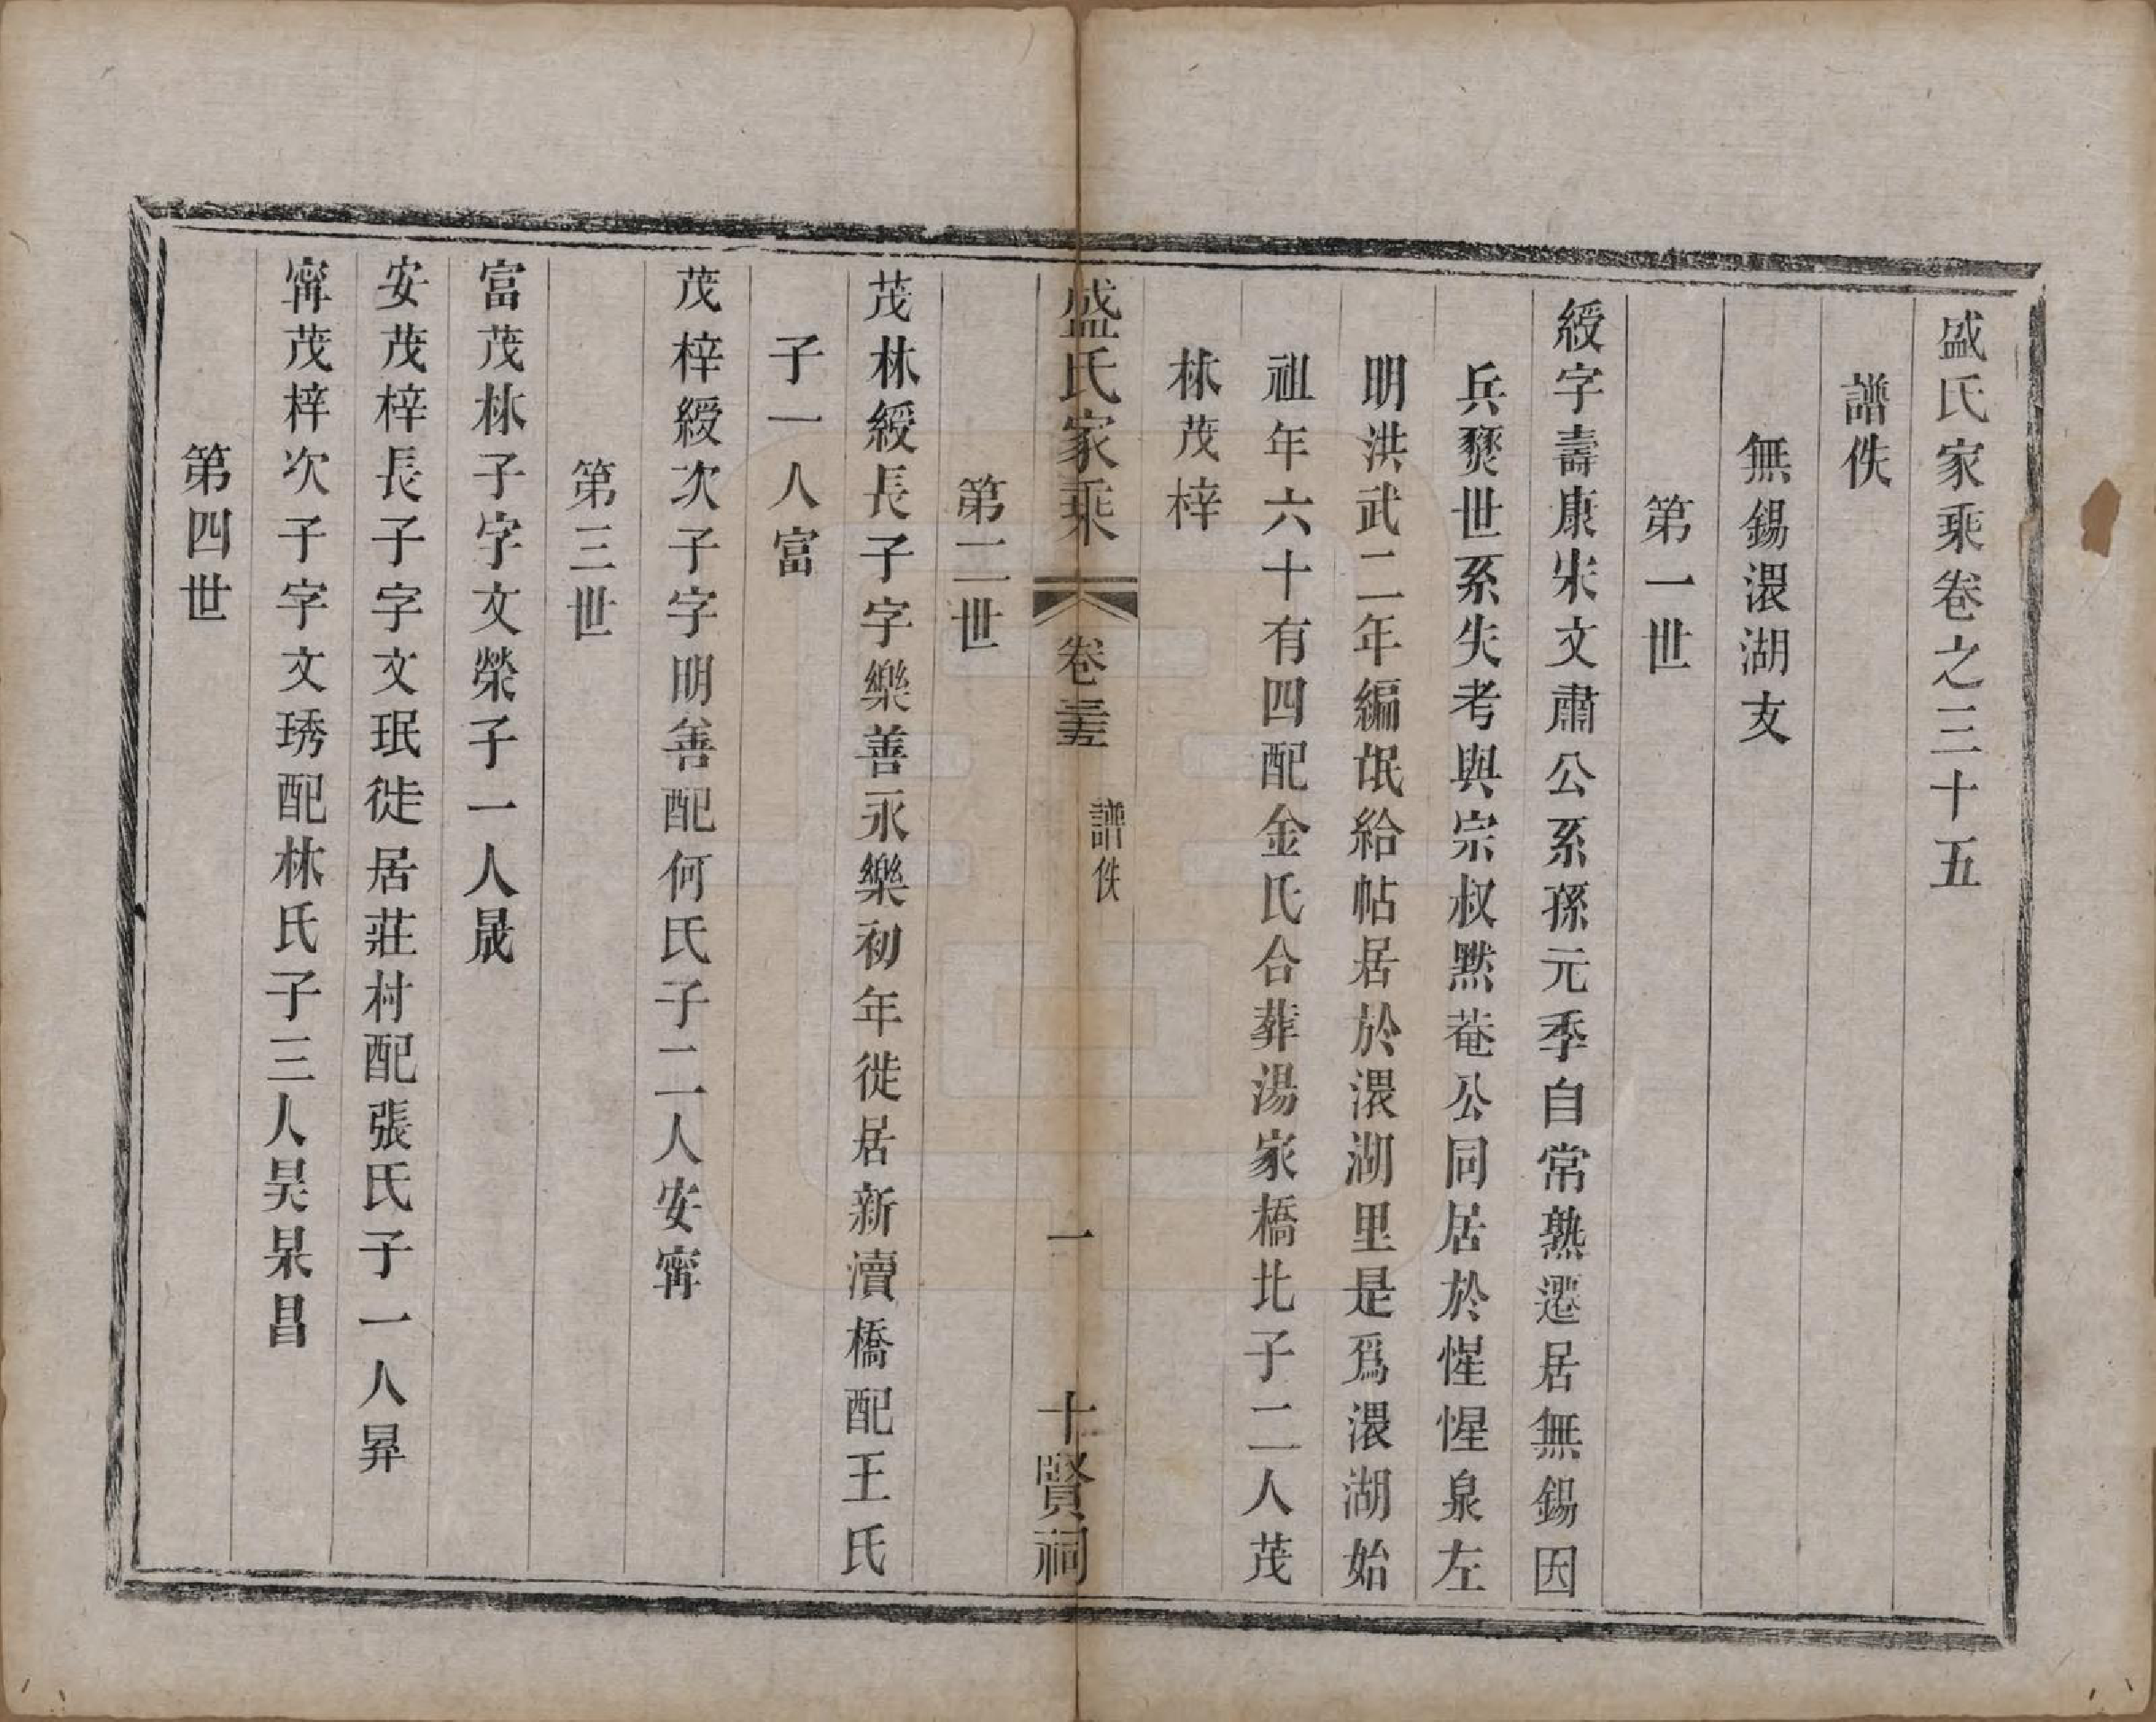 盛氏家乘卷之三十五
譜佚
無錫渨湖支
第一世
綬字壽康宋文肅公系孫元季自常熟遷居無錫因
兵燹世系失考與宗叔黙菴公同居於惺惺泉左
明洪武二年編氓給帖居於渨湖里是爲渨湖始
祖年六十有四配金氏合葬湯家橋北子二人茂
林茂梓
盛氏家乘
卷三十五
譜佚
一
十賢祠
第二世
茂林綬長子字樂善永樂初年徙居新瀆橋配王氏
子一人富
茂梓綬次子字明善配何氏子二人安寗
第三世
富茂林子字文榮子一人晟
安茂梓長子字文珉徙居莊村配張氏子一人昇
寗茂梓次子字文琇配林氏子三人昊杲昌
第四世